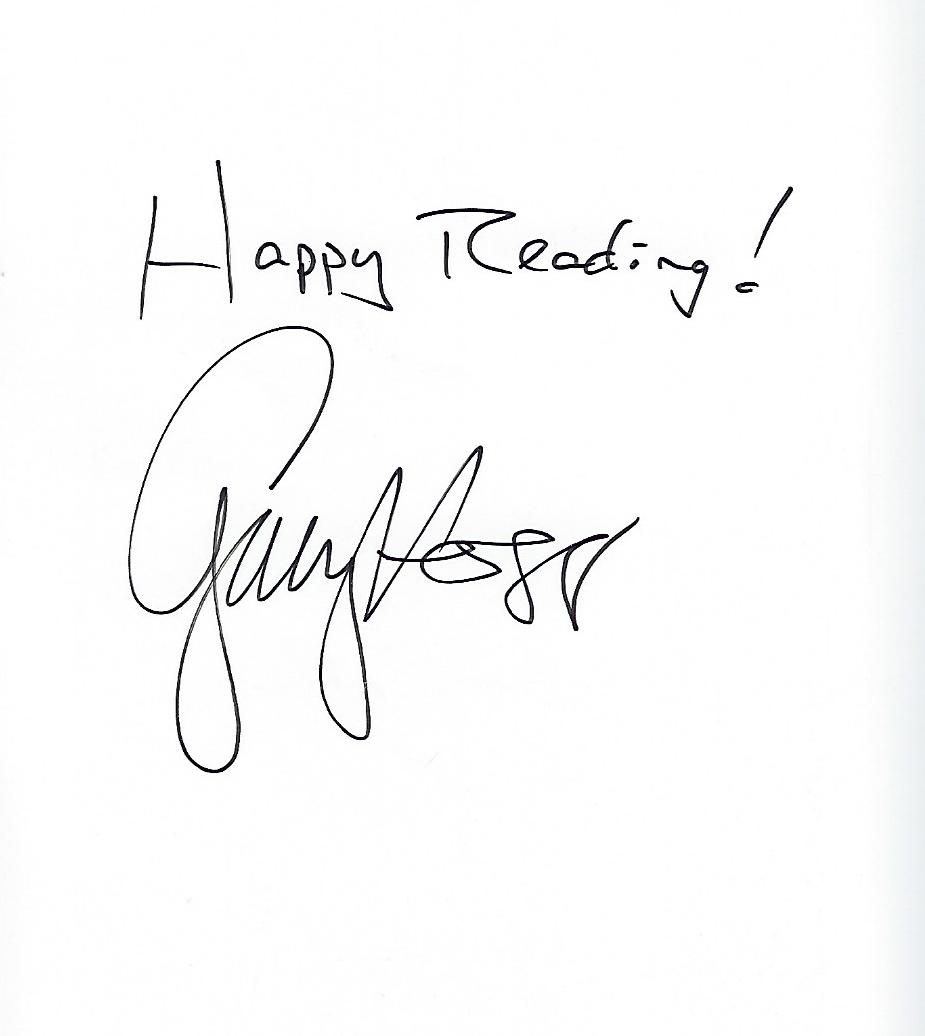 Happy Reading!
Gary